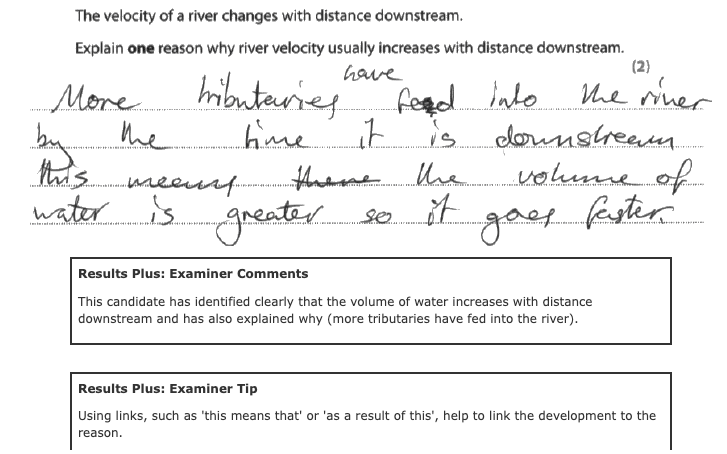 The velocity of a river changes with distance downstream.
Explain one reason why river velocity usually increases with distance downstream.
(2)
have
More tributaries feed into the river
by the time it is downstream
this means there the volume of
water is greater so it goes faster.
Results Plus: Examiner Comments
This candidate has identified clearly that the volume of water increases with distance
downstream and has also explained why (more tributaries have fed into the river).
Results Plus: Examiner Tip
Using links, such as 'this means that' or 'as a result of this', help to link the development to the
reason.